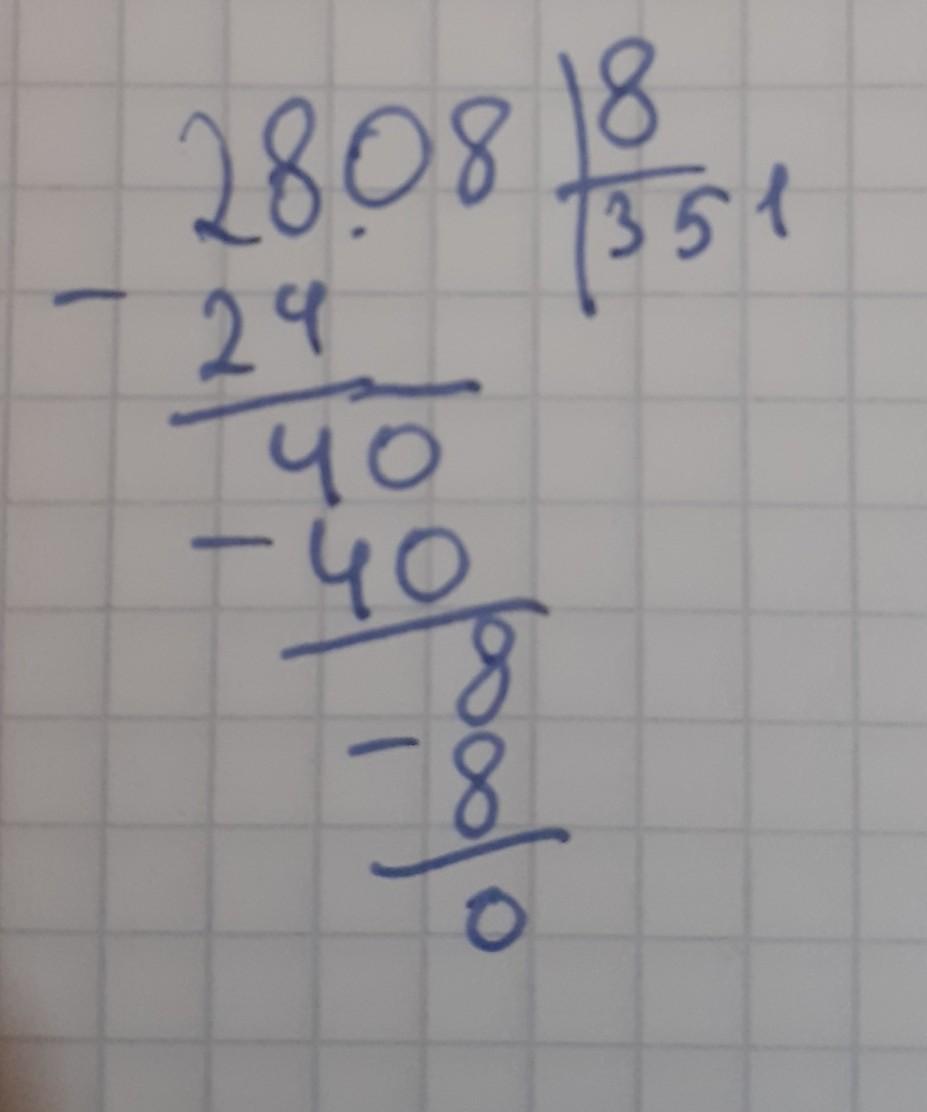 28.08 8
351
- 24
40
- 40
8
- 8
0